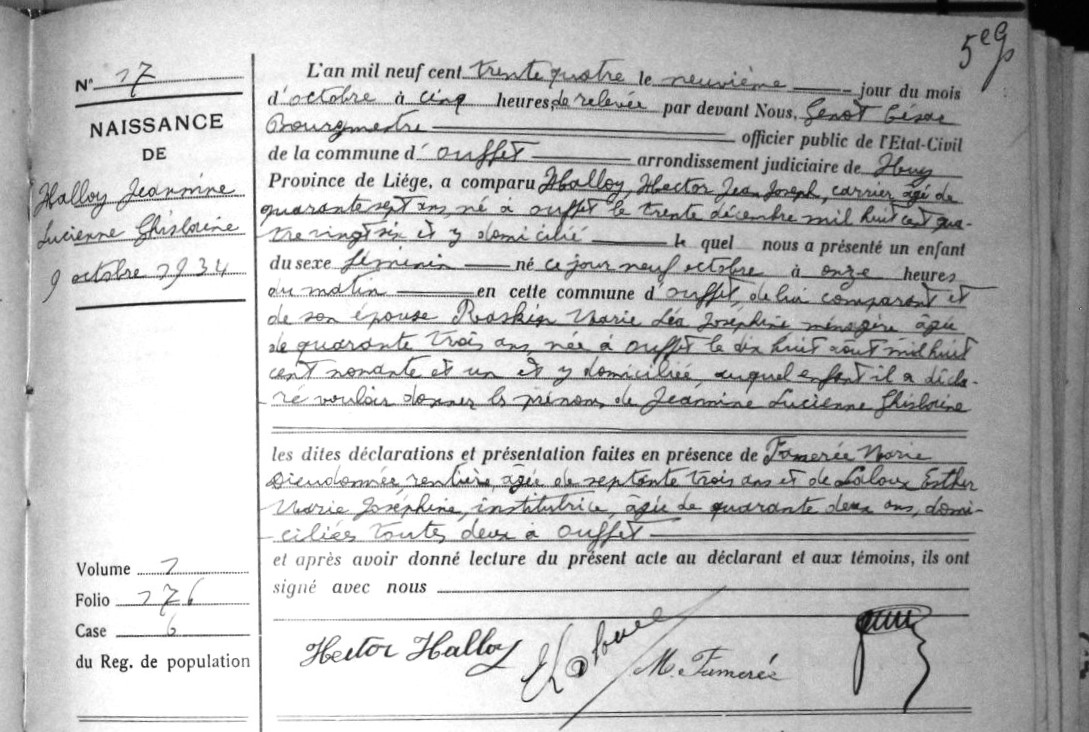 5e G
N° 17
NAISSANCE
DE
Halloy Jeannine
Lucienne Ghislaine
9 octobre 1934
L'an mil neuf cent trente quatre le neuvième jour du mois
d'octobre à cinq heures, de relevée par devant Nous, Genot César
Bourgmestre officier public de l'Etat-Civil
de la commune d' Ouffet arrondissement judiciaire de Huy
Province de Liége, a comparu Halloy, Hector Jean Joseph, carrier âgé de
quarante sept ans, né à Ouffet le trente décembre mil huit cent qua-
tre vingt six et y domicilié le quel nous a présenté un enfant
du sexe féminin né ce jour neuf octobre à onze heures
du matin en cette commune d'Ouffet, de lui comparant et
de son épouse Raskin Marie Léa Joséphine ménagère âgée
de quarante trois ans, née à Ouffet le dix huit août mil huit
cent nonante et un et y domiciliée, auquel enfant il a décla-
ré vouloir donner les prénoms de Jeannine Lucienne Ghislaine
les dites déclarations et présentation faites en présence de Famerée Marie
Dieudonnée, rentière, âgée de septante trois ans et de Laloux Esther
Marie Joséphine, institutrice, âgée de quarante deux ans, domi-
ciliées toutes deux à Ouffet
et après avoir donné lecture du présent acte au déclarant et aux témoins, ils ont
signé avec nous
Volume 1
Folio 176
Case 6
du Reg. de population
Hector Halloy M. Famerée